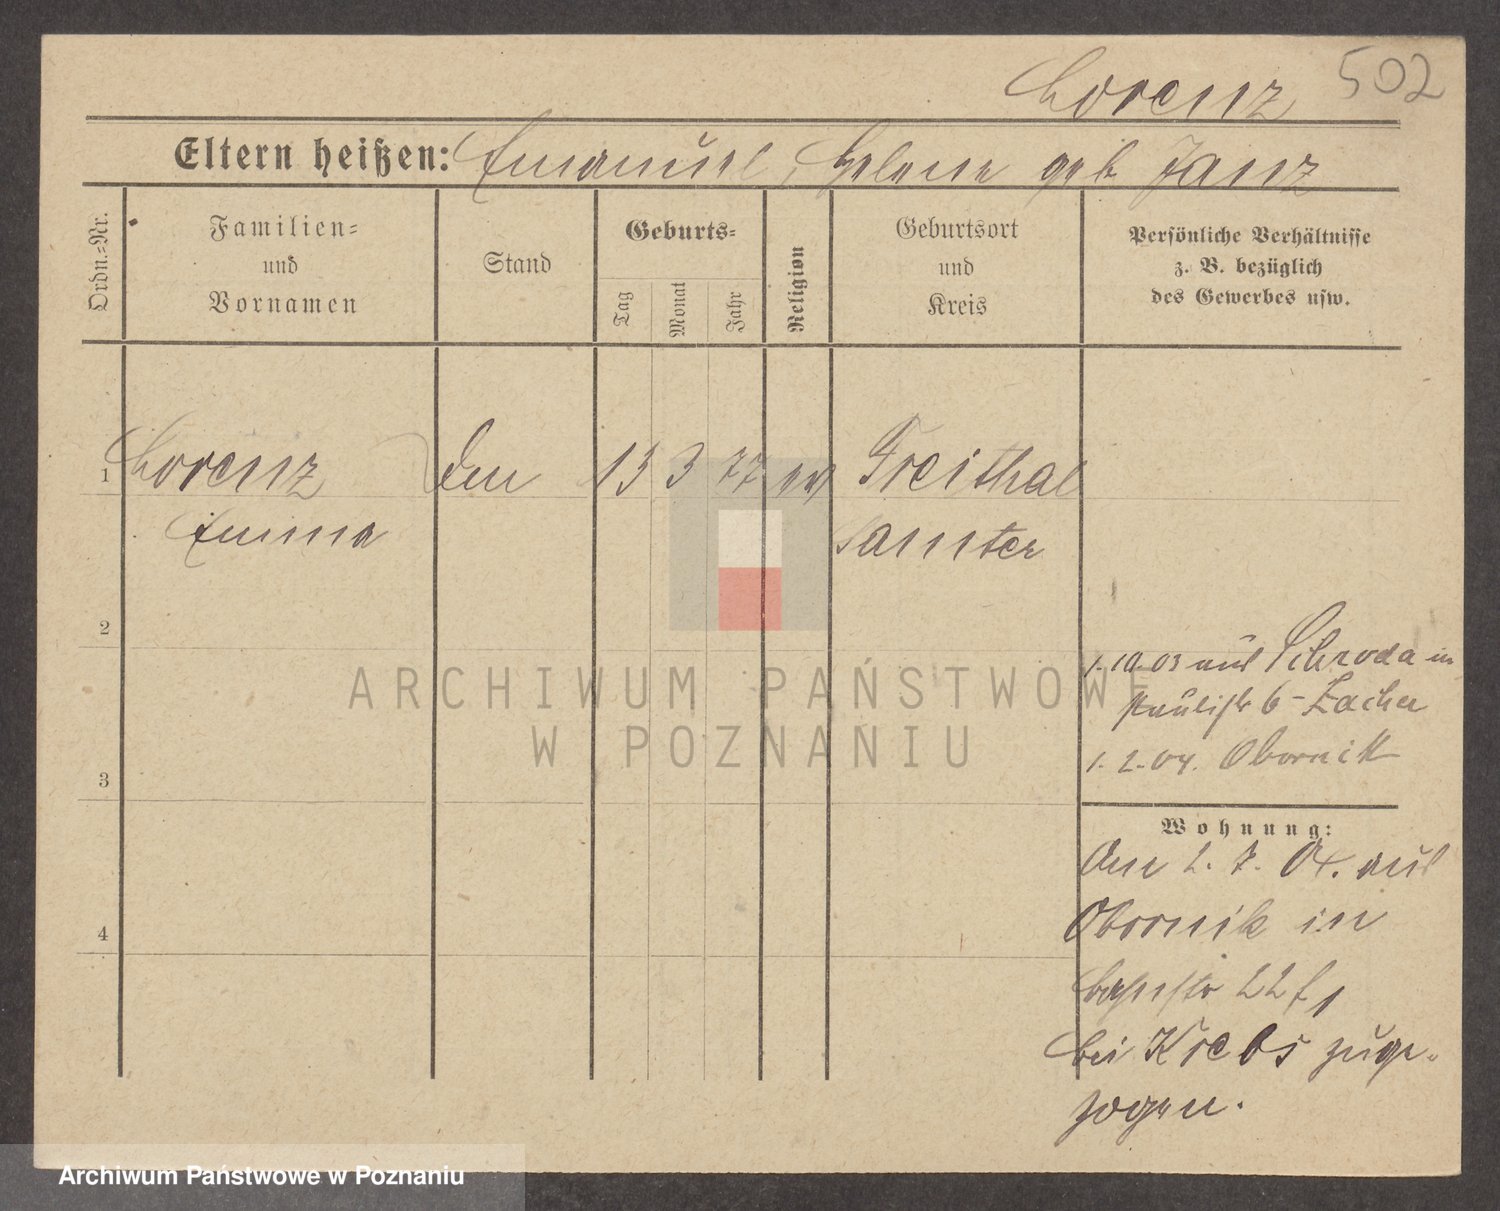 Lorenz 502
Eltern heißen: Emanuel, Helene geb Janz
Ordn.-Nr.
Familien-
und
Vornamen
Stand
Geburts-
Tag
Monat
Jahr
Religion
Geburtsort
und
Kreis
Persönliche Verhältnisse
z. B. bezüglich
des Gewerbes usw.
1 Lorenz 13 3 77 ev Freithal
Emma Samter
2
1.10.03 aus Schroda in
Paulistr 6 - Zacher
1.2.04. Obornik
ARCHIWUM PAŃSTWOWE
W POZNANIU
3
Wohnung:
Am 2. 7. 04. aus
Obornik in
4
Bahnstr 22 f,
bei Krebs zuge-
zogen.
Archiwum Państwowe w Poznaniu